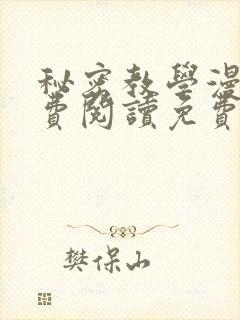 秘密教學漫
費閱讀免費
樊保山